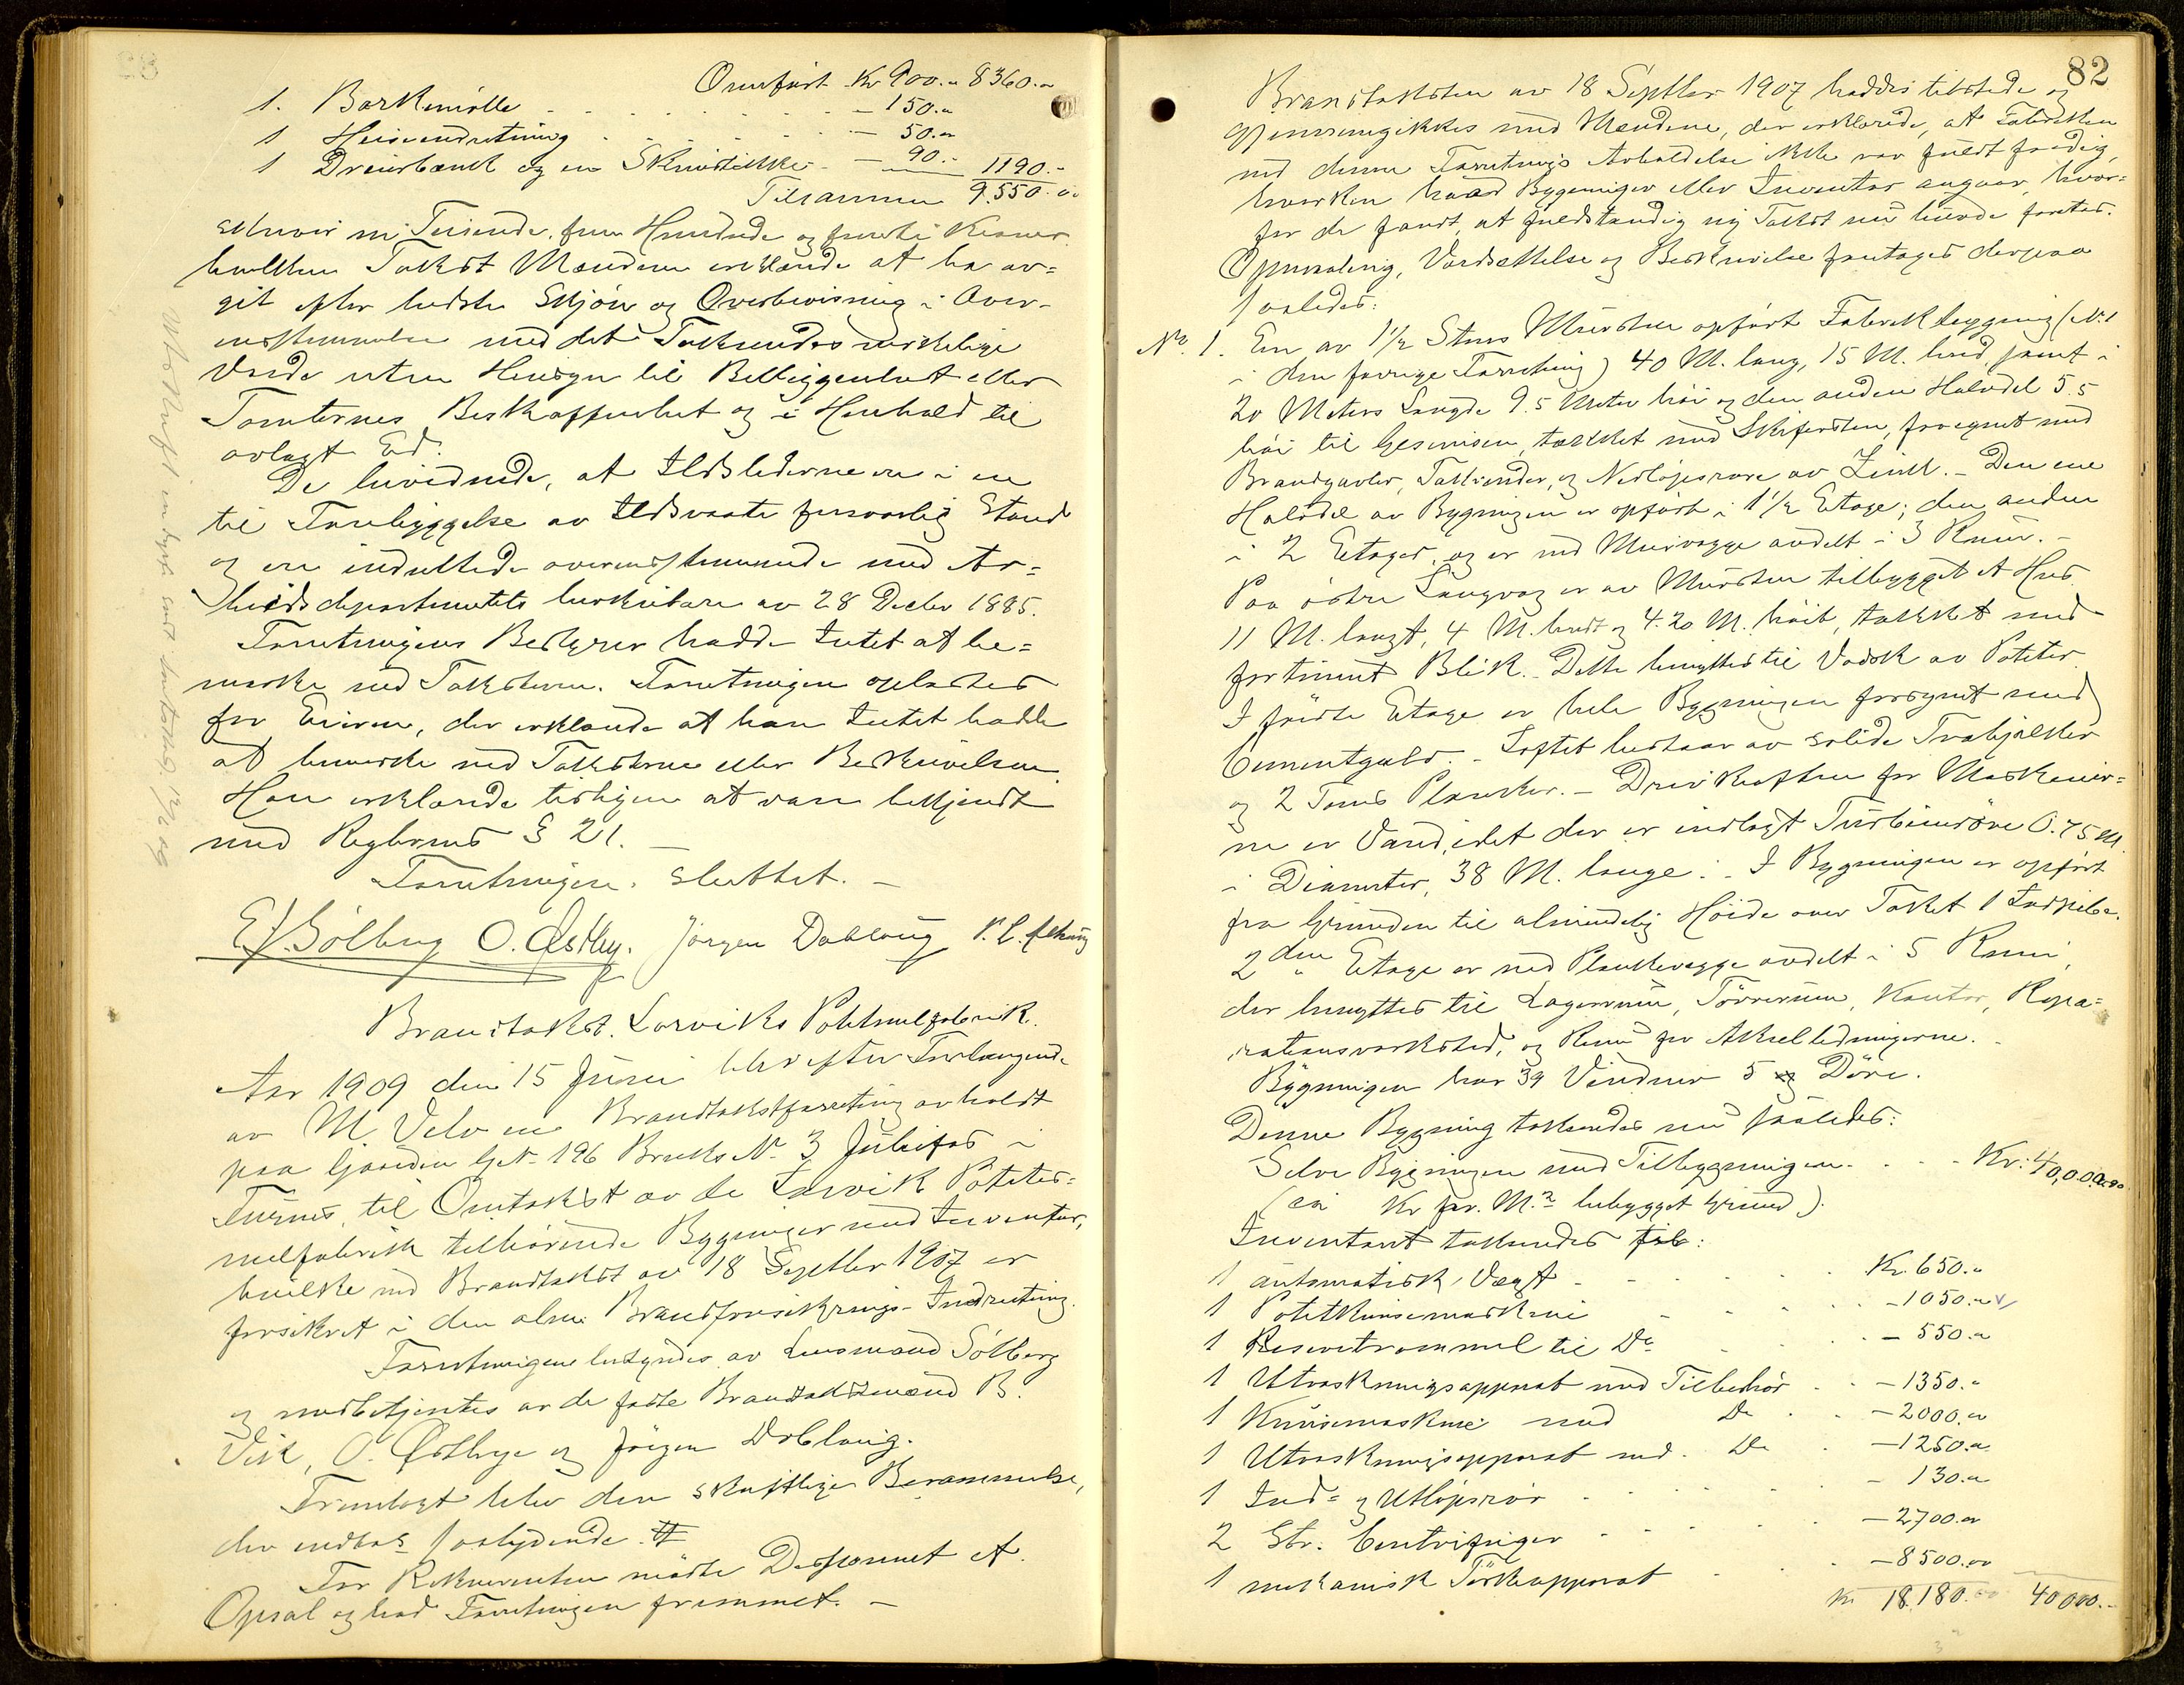 Overført Kr 900.- 8360.-
1. Barkemølle - 150.-
1 Heiseindretning - 50.-
1 Dreierbænk og en Skruestikke - 90.- 1190.-
Tilsammen 9.550.00
skriver ni Tusende, fem Hundrede og femti Kroner
hvilken Takst Mændene erklærede at ha av=
git efter bedste Skjøn og Overbevisning i Over-
ensstemmelse med det Takseredes virkelige
Værdi uten Hensyn til Beliggenhet eller
Tomternes Beskaffenhet og i Henhold til
avlagt Ed.
De bevidnede, at Ildstederne er i en
til Forebyggelse av Ildsvaade forsvarlig Stand
og er indrettede overensstemmende med Ar=
beidsdepartementets cirkulære av 28 Decbr 1885.
Forretningens Bestyrer hadde Intet at be=
merke ved Taksterne. Forretningen oplæstes
for Eieren, der erklærede at han Intet hadde
at bemerke ved Taksterne eller Beskrivelsen.
Han erklærede tillige at være bekjendt
med Reglernes § 21. -
Forretningen sluttet. -
E. Solberg O. Østby. Jørgen Dabloug
Brandtakst. Lerviks Potetmelfabrik.
Aar 1909 den 15 Juni blev efter Forlangende
av M. Velo en Brandtakstforretning avholdt
paa Gaarden G.N. 196 Bruks N. 3 Julifos i
Furnes, til Omtakst av de Lervik Potetes=
melfabrik tilhørende Bygninger med Inventar,
hvilke ved Brandtakst av 18 Septbr 1907 er
forsikret i den alm. Brandforsikrings-Indretning.
Forretningen bestyredes av Lensmand Solberg
og medbetjentes av de faste Brandtakstmænd B.
Vik, O. Østbye og Jørgen Dobloug.
Fremlagt blev den skriftlige Berammelse,
der indtas saalydende #
For Rekvirenten mødte Disponent A.
Opsal og bad Forretningen fremmet. -
82
Brandtaksten av 18 Septbr 1907 haddes tilstede og
gjennemgikkes med Mændene, der erklærede, at Fabrikken
ved denne Forretnings Avholdelse ikke var fuldt færdig,
hverken hvad Bygninger eller Inventar angaar, hvor=
for de fandt, at fuldstændig ny Takst nu burde foretas.
Opmaaling, Værdsættelse og Beskrivelse foretages derpaa
saaledes:
No. 1. En av 1½ Stens Mursten opført Fabrikbygning (N. 1
i den forrige Forretning) 40 M. lang, 15 M. bred, samt i
20 Meters Længde 9.5 Meter høi og den anden Halvdel 5.5
høi til Gesimsen, tækket med Skifersten, forsynet med
Brandgavler, Takrender, og Nedløpsrøre av Zink. - Den ene
Halvdel av Bygningen er opført i 1½ Etage; den anden
i 2 Etager, og er ved Murvægge avdelt i 3 Rum. -
Paa østre Langvæg er av Mursten tilbygget et Hus
11 M. langt, 4 M. bredt og 4.20 M. høit, tækket med
fortinnet Blik. - Dette benyttes til Vadsk av Poteter.
I første Etage er hele Bygningen forsynet med
Cementgulv. - Loftet bestaar av solide Træbjælker
og 2 Toms Planker. - Drivkraften for Maskiner=
ne er Vand, idet der er indlagt Turbinrøre 0.75 M.
i Diameter, 38 M. lange. - I Bygningen er opført
fra Grunden til almindelig Høide over Taket 1 Luftpibe.
2den Etage er ved Plankevægge avdelt i 5 Rum,
der benyttes til Lagerrum, Tørrerum, Kontor, Repa=
rationsverksted, og Rum for Akselledningerne. -
Bygningen har 39 Vinduer 5 Døre.
Denne Bygning takseredes nu saaledes:
Selve Bygningen med Tilbygningen - Kr: 40,000.00
(ca Kr pr. M.2 bebygget Grund).
Inventaret takseredes til:
1 automatisk Vægt - Kr. 650.-
1 Potetknusemaskine - 1050.-
1 Reservetrommel til Do - 550.-
1 Utvaskningsapparat med Tilbehør - 1350.-
1 Knusemaskine med Do - 2000.-
1 Utvaskningsapparat med Do - 1250.-
1 Ind= og Utløpsrør - 130.-
2 Str. Centrifuger - 2700.-
1 mekanisk Tørkeapparat - 8500.00
Kr 18.180.00 40000.-